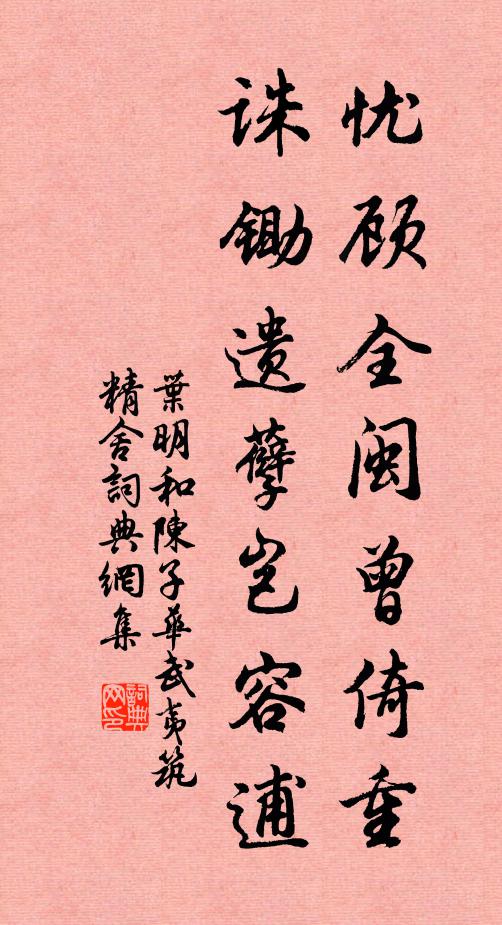 忧顾全闽曾倚重
诛锄遗孽岂容逋
葉明和陳子華武夷筑
精舍詞典網集
詞典网印